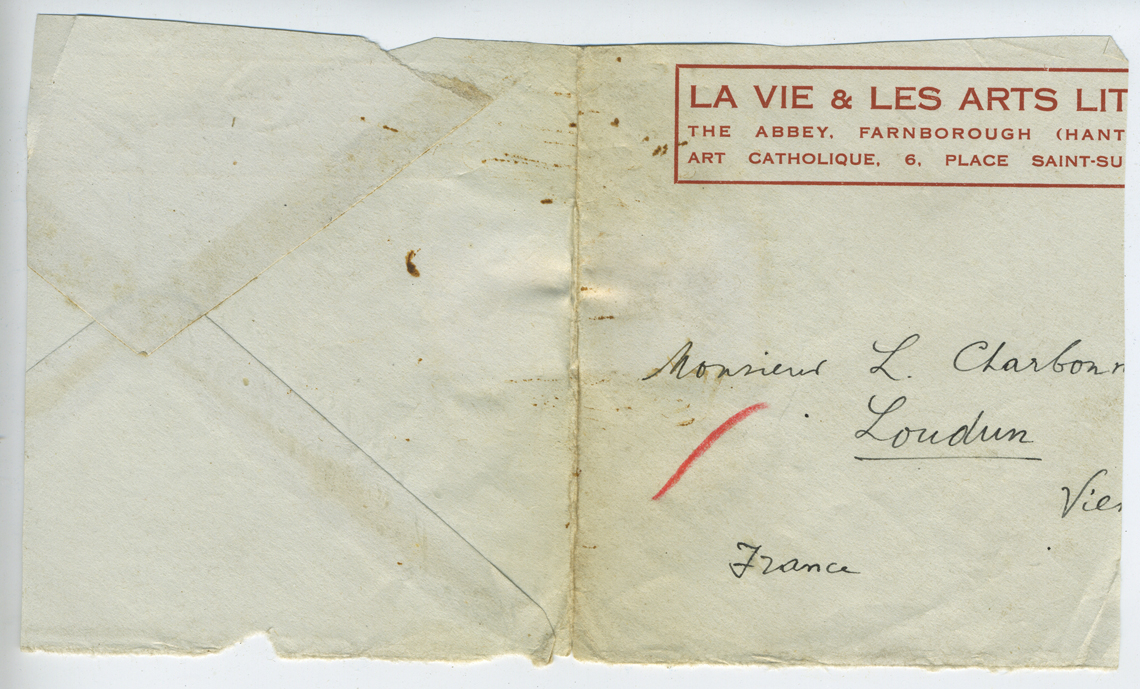 LA VIE & LES ARTS LIT
THE ABBEY, FARNBOROUGH (HANT
ART CATHOLIQUE, 6, PLACE SAINT-SU
Monsieur L. Charbonn
Loudun
Vien
France